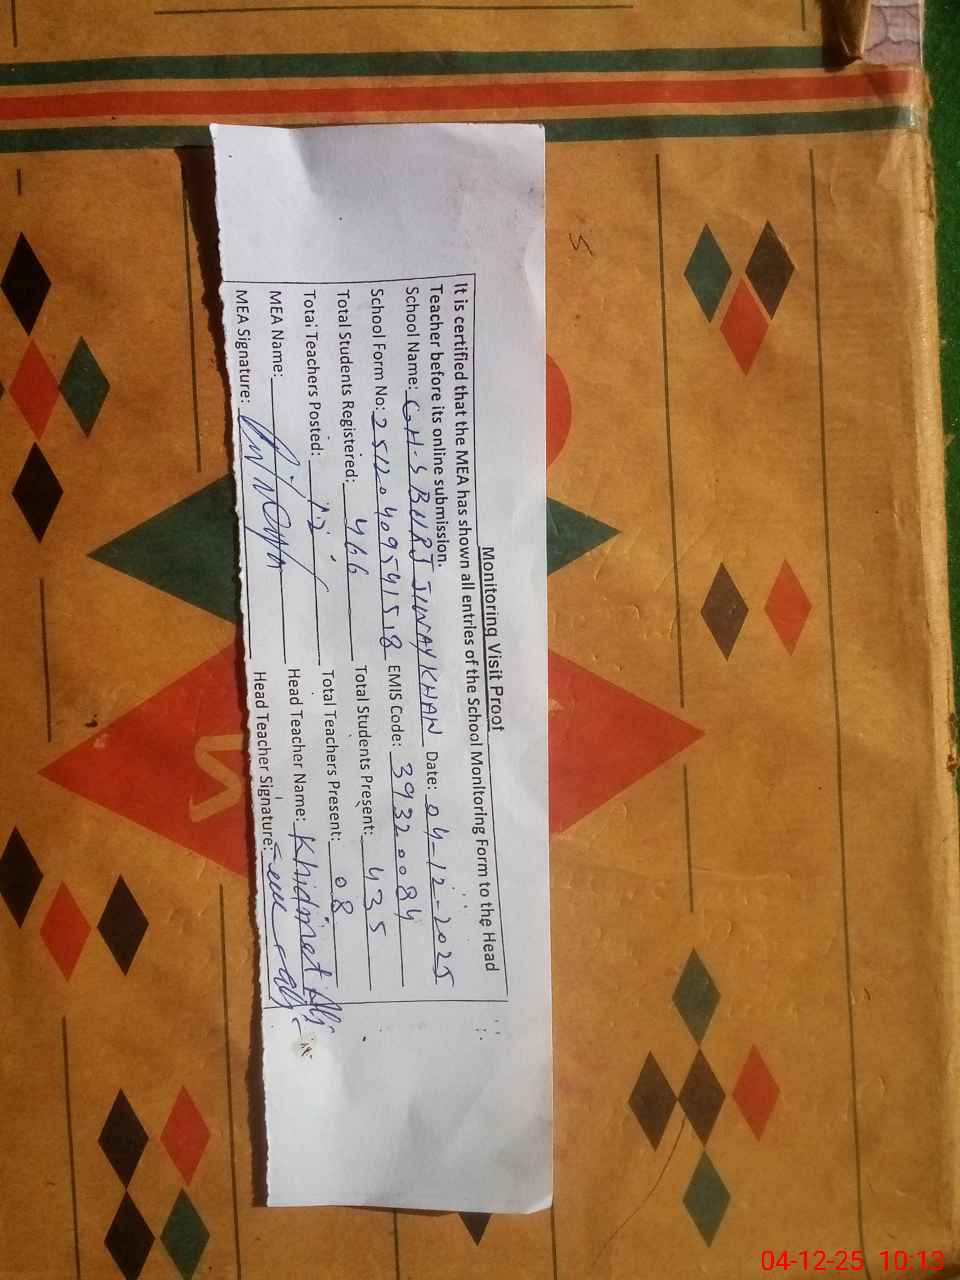 Monitoring Visit Proof
It is certified that the MEA has shown all entries of the School Monitoring Form to the Head
Teacher before its online submission.
School Name: G.H.S BURJ JIWAY KHAN Date: 04-12-2025
School Form No: 25120409541518 EMIS Code: 39320084
Total Students Registered: 466 Total Students Present: 435
Total Teachers Posted: 12 Total Teachers Present: 08
MEA Name: Head Teacher Name: Khidmat Ali
MEA Signature: Head Teacher Signature:
04-12-25 10:13